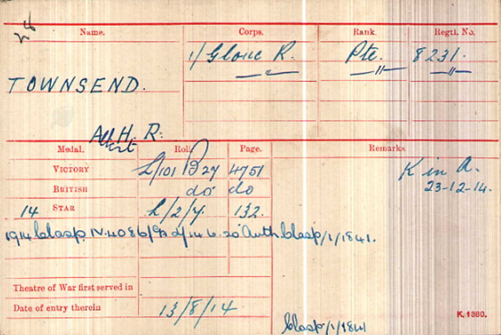 28
Name. Corps. Rank. Regtl. No.
1/ Glouc R. Pte. 8231.
TOWNSEND.
Albert H. R.
Medal. Roll. Page. Remarks
VICTORY L/101 B27 4751 K in A.
BRITISH do do 23-12-14.
14 STAR L/2/4. 132.
1914 Clasp IV. 4086/ 14.6.20 Auth Clasp/1/1841.
Theatre of War first served in
Date of entry therein 13/8/14
Clasp/1/1841
K. 1380.